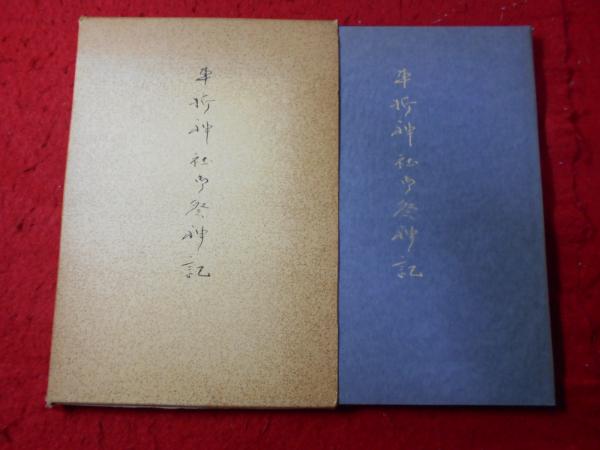 車折神社御祭神記
車折神社御祭神記